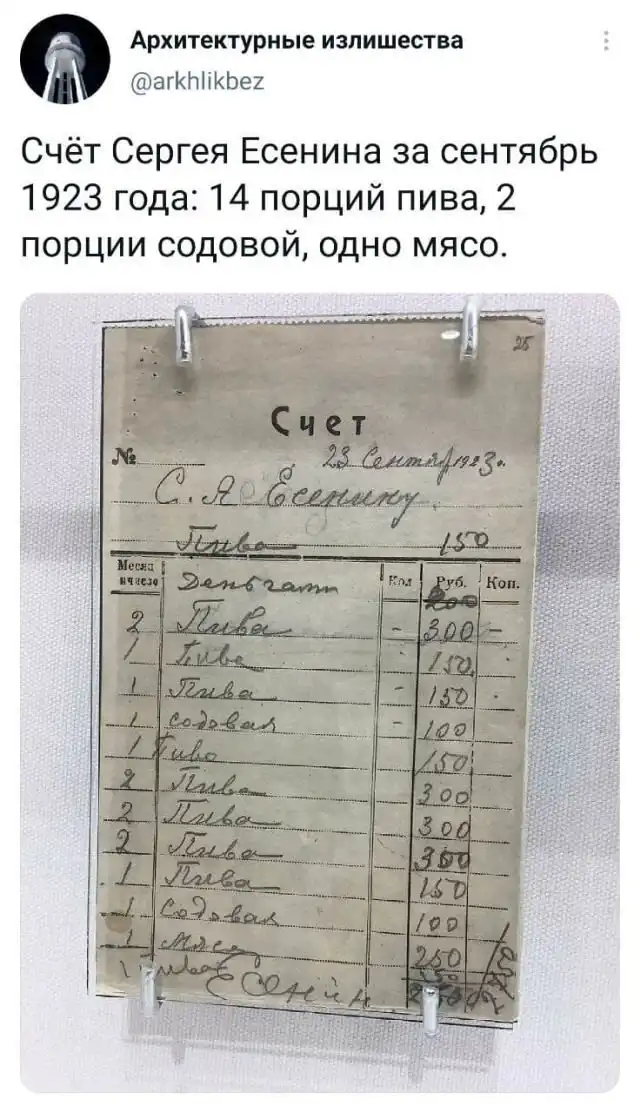 Архитектурные излишества
@arkhlikbez
Счёт Сергея Есенина за сентябрь
1923 года: 14 порций пива, 2
порции содовой, одно мясо.
25
Счет
№ 23 Сентябр 1923г.
С. А Есенину.
Пива 150
Месяц и число Деньгами Кол Руб. Коп.
2 Пива - 300 -
1 Пива 150
1 Пива - 150
1 содовая - 100
1 Пиво 150
2 Пива 300
2 Пива 300
2 Пива 300
1 Пива 150
1 Содовая 100
1 Мясо 250
1 Пива 150
Есенин